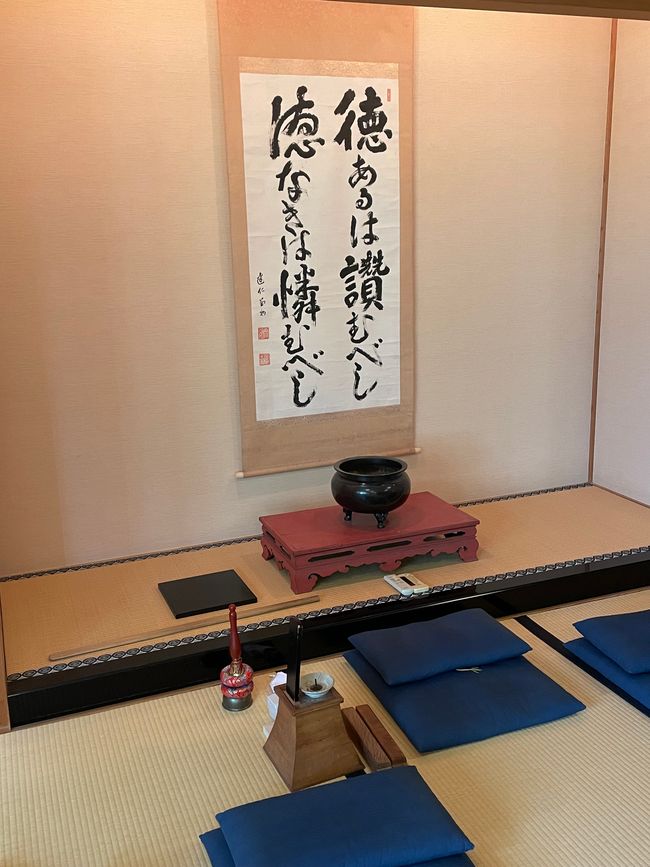 徳あるは讚むべし
徳なきは憐むべし